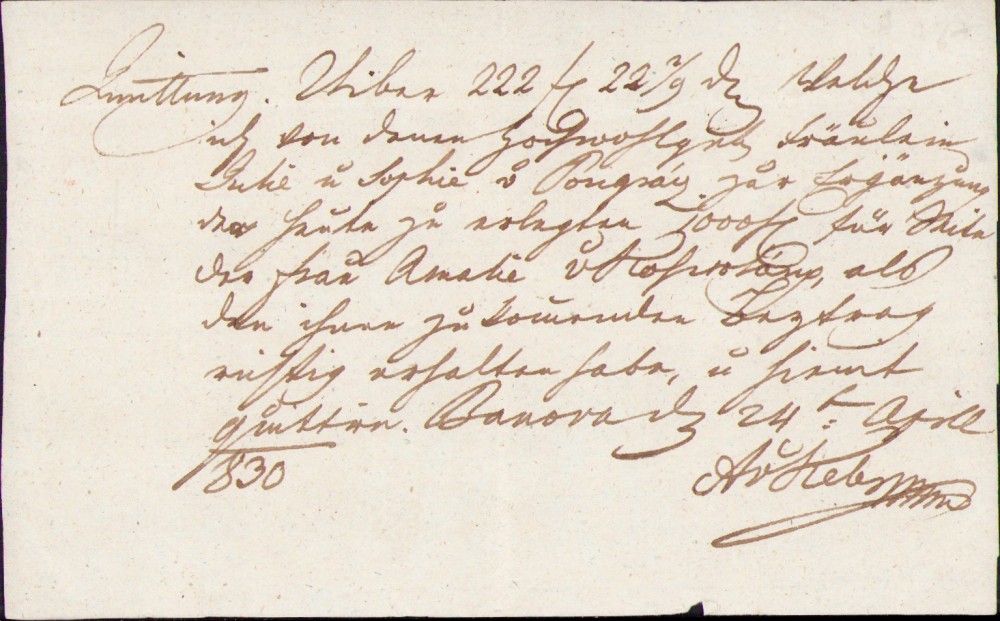 Quittung. Über 222 f 22 2/9 d Welche
ich von denen Hochwohlgeb Fräulein
Julie u Sophie v Pongráz zur Ergänzung
der heute zu erlegten 2000 f für Seite
der Frau Amalie v als
den ihnen zukommenden Beytrag
richtig erhalten habe, u hiemit
quittire. Banova d 24t: April
830